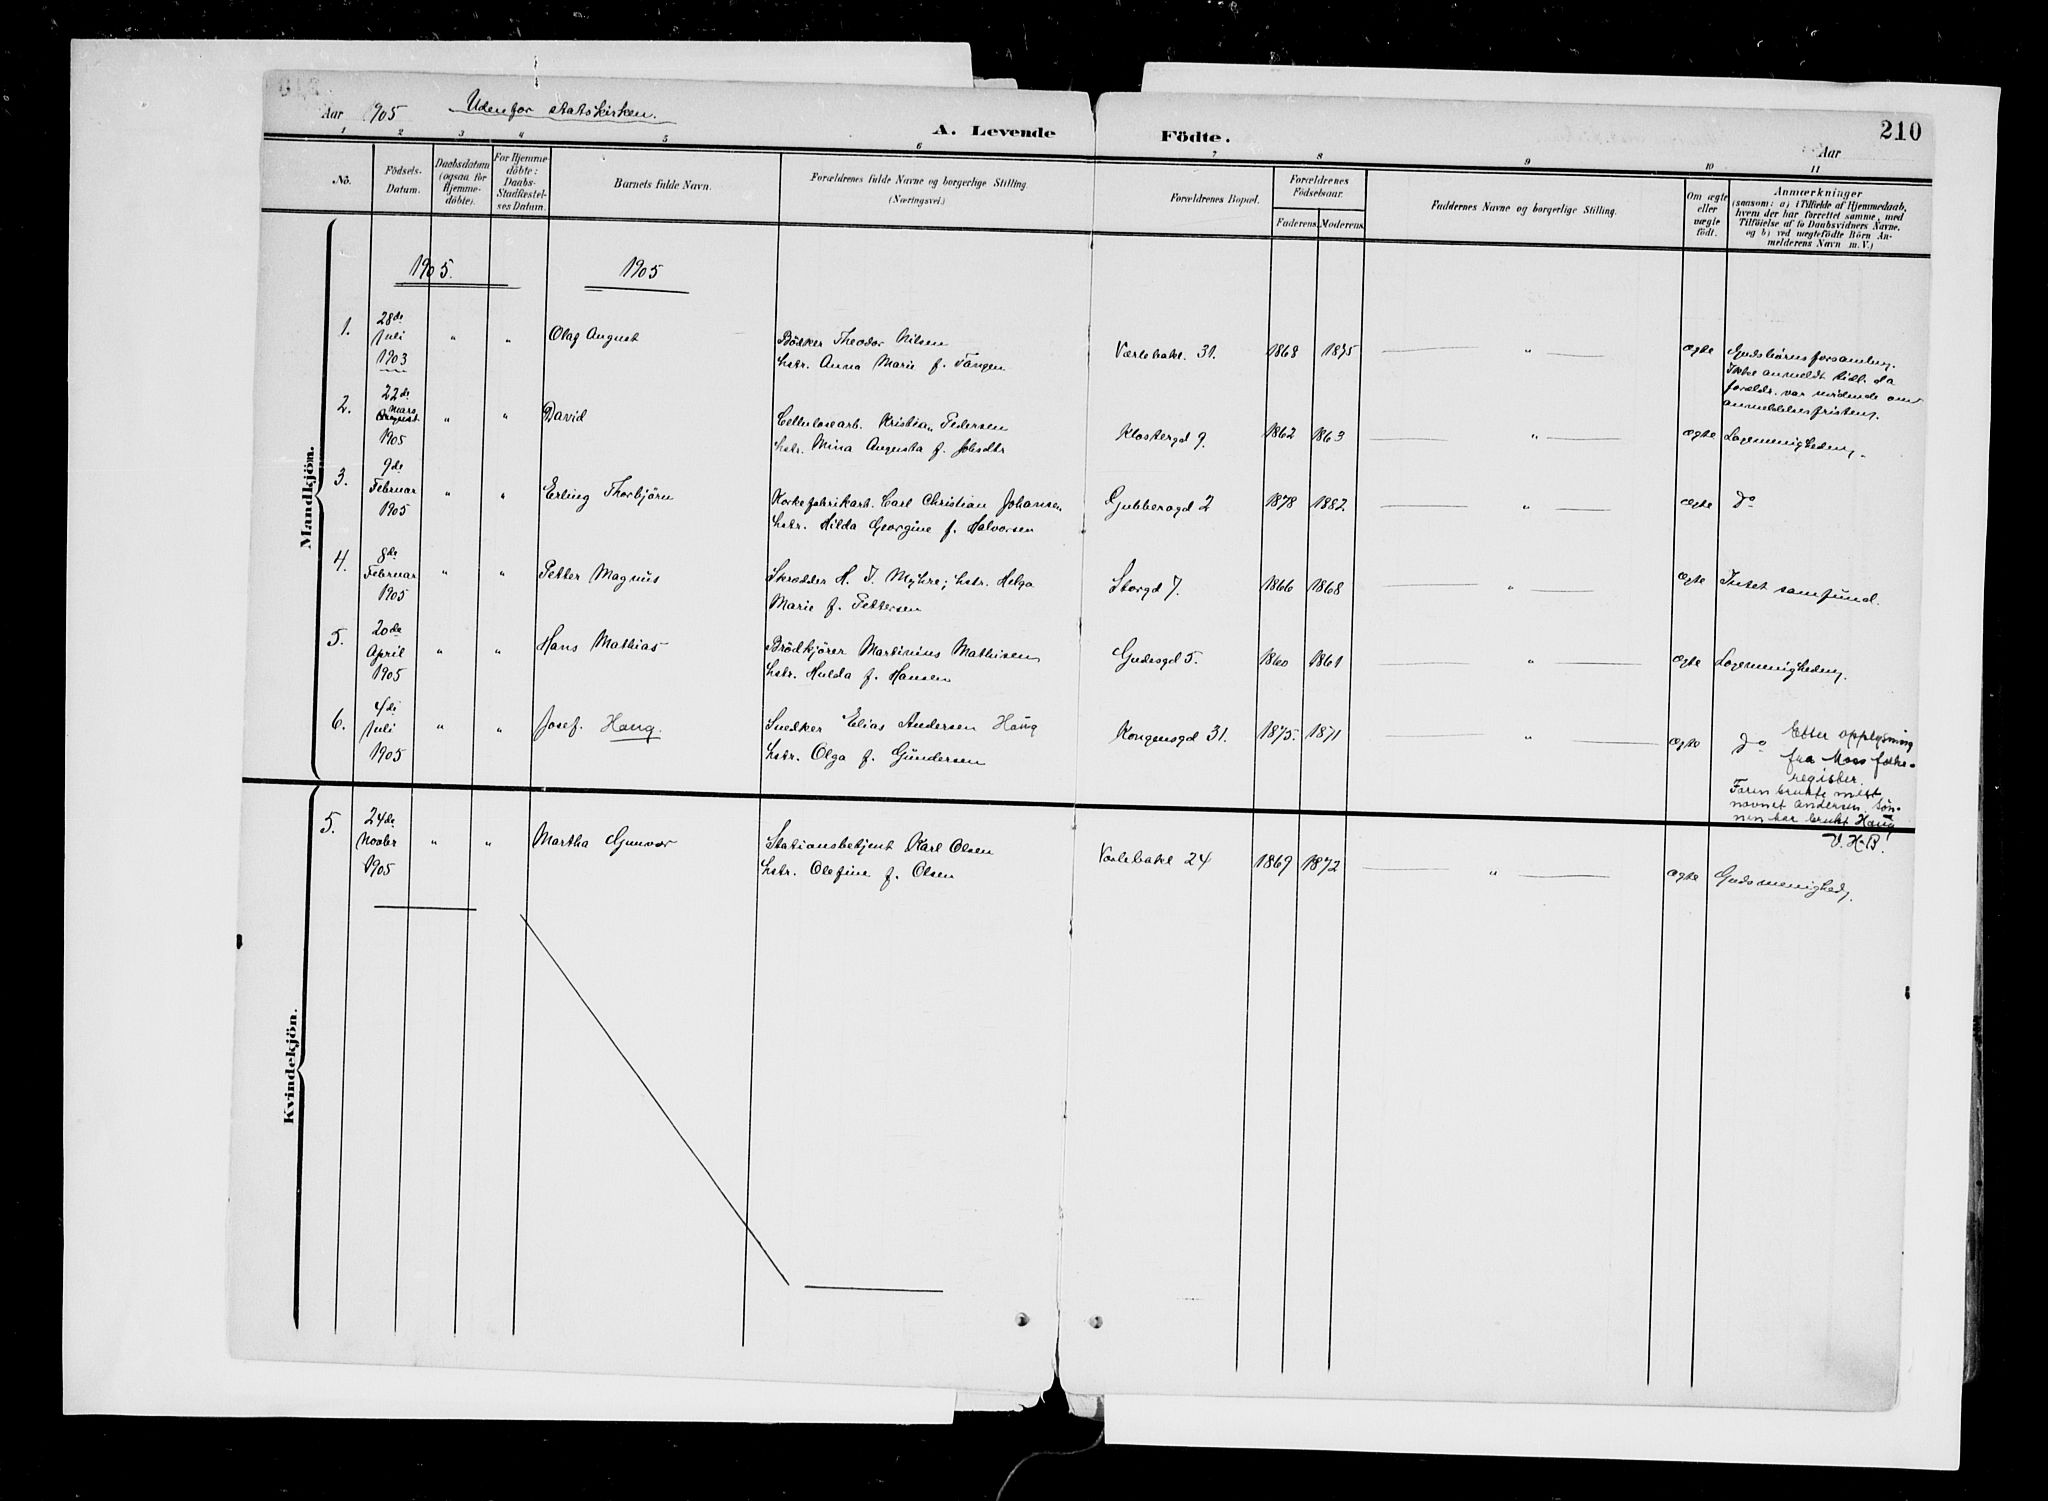 Aar 1905 Udenfor statskirken.
A. Levende Födte.
210
Aar
1 2 3 4 5 6 7 8 9 10 11
No.
Födsels-
Datum.
Daabsdatum
(ogsaa for
Hjemme-
döbte).
For Hjemme-
döbte:
Daabs-
Stadfæstel-
ses Datum.
Barnets fulde Navn.
Forældrenes fulde Navne og borgerlige Stilling
(Næringsvei.)
Forældrenes Bopæl.
Forældrenes
Födselsaar.
Faderens. Moderens.
Faddernes Navne og borgerlige Stilling.
Om ægte
eller
uægte
födt.
Anmærkninger
(saasom: a) i Tilfælde af Hjemmedaab,
hvem der har forrettet samme, med
Tilföielse af to Daabsvidners Navne,
og b) ved uægtefödte Börn An-
melderens Navn m. V.)
Mandkjön.
1905. 1905
1. 28de
Juli
1903
" " Olaf August
Bödker Theodor Nilsen
hstr. Anna Marie f. Tangen
Værlebakl. 31. 1868 1875 " ægte
Gudsbörns forsamling.
Ikke anmeldt tidl. da
foreldr. var uvidende om
anmeldelsesfristen.
2. 22de
Mars
August
1905
" " David
Cellulosearb. Kristian Pedersen
hstr. Mina Augusta f. Jobsdtr
Klostergd 9. 1862 1863 " ægte Logemenigheden.
3. 9de
Februar
1905
" " Erling Thorbjörn
Korkefabrikarb. Carl Christian Johansen
hstr. Hilda Georgine f. Halvorsen
Gubberogd 2 1878 1882. " ægte do
4. 8de
Februar
1905
" " Petter Magnus
Skrædder H. J. Myhre; hstr. Helga
Marie f. Pettersen
Storgd 7. 1866 1868 " ægte Intet samfund.
5. 20de
April
1905
" " Hans Mathias
Brödkjörer Martinius Mathisen
hstr. Hulda f. Hansen
Gudesgd 5. 1860 1861 " ægte Logemenigheden.
6. 4de
Juli
1905
" " Josef. Haug.
Snedker Elias Andersen Haug
hstr. Olga f. Gundersen
Kongensgd 31. 1875. 1871 " ægte do
Etter opplysning
fra Moss folke-
register.
Faren brukte mest
navnet Andersen. Søn-
nen har brukt Haug
V. H. B.
Kvindekjön.
5. 24de
Novbr
1905
" " Martha Gunvor
Stationsbetjent Karl Olsen
hstr. Olefine f. Olsen
Vorlebakl 24 1869 1872 " ægte Gudsmenighed.